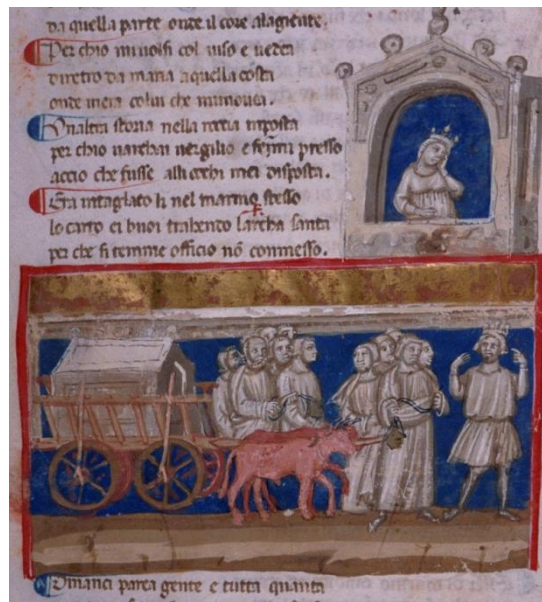 da quella parte onde il core a la gente.
Per chio mi volsi col viso e vedea
diretro da maria a quella costa
onde mera colui che mi movea.
Unaltra storia nella roccia imposta
per chio varchai vergilio e femi presso
accio che fusse alli occhi miei disposta.
Era intagliato li nel marmo stesso
lo carro ei buoi trahendo larcha santa
per che si teme officio nō commesso.
Dinanci parea gente e tutta quanta